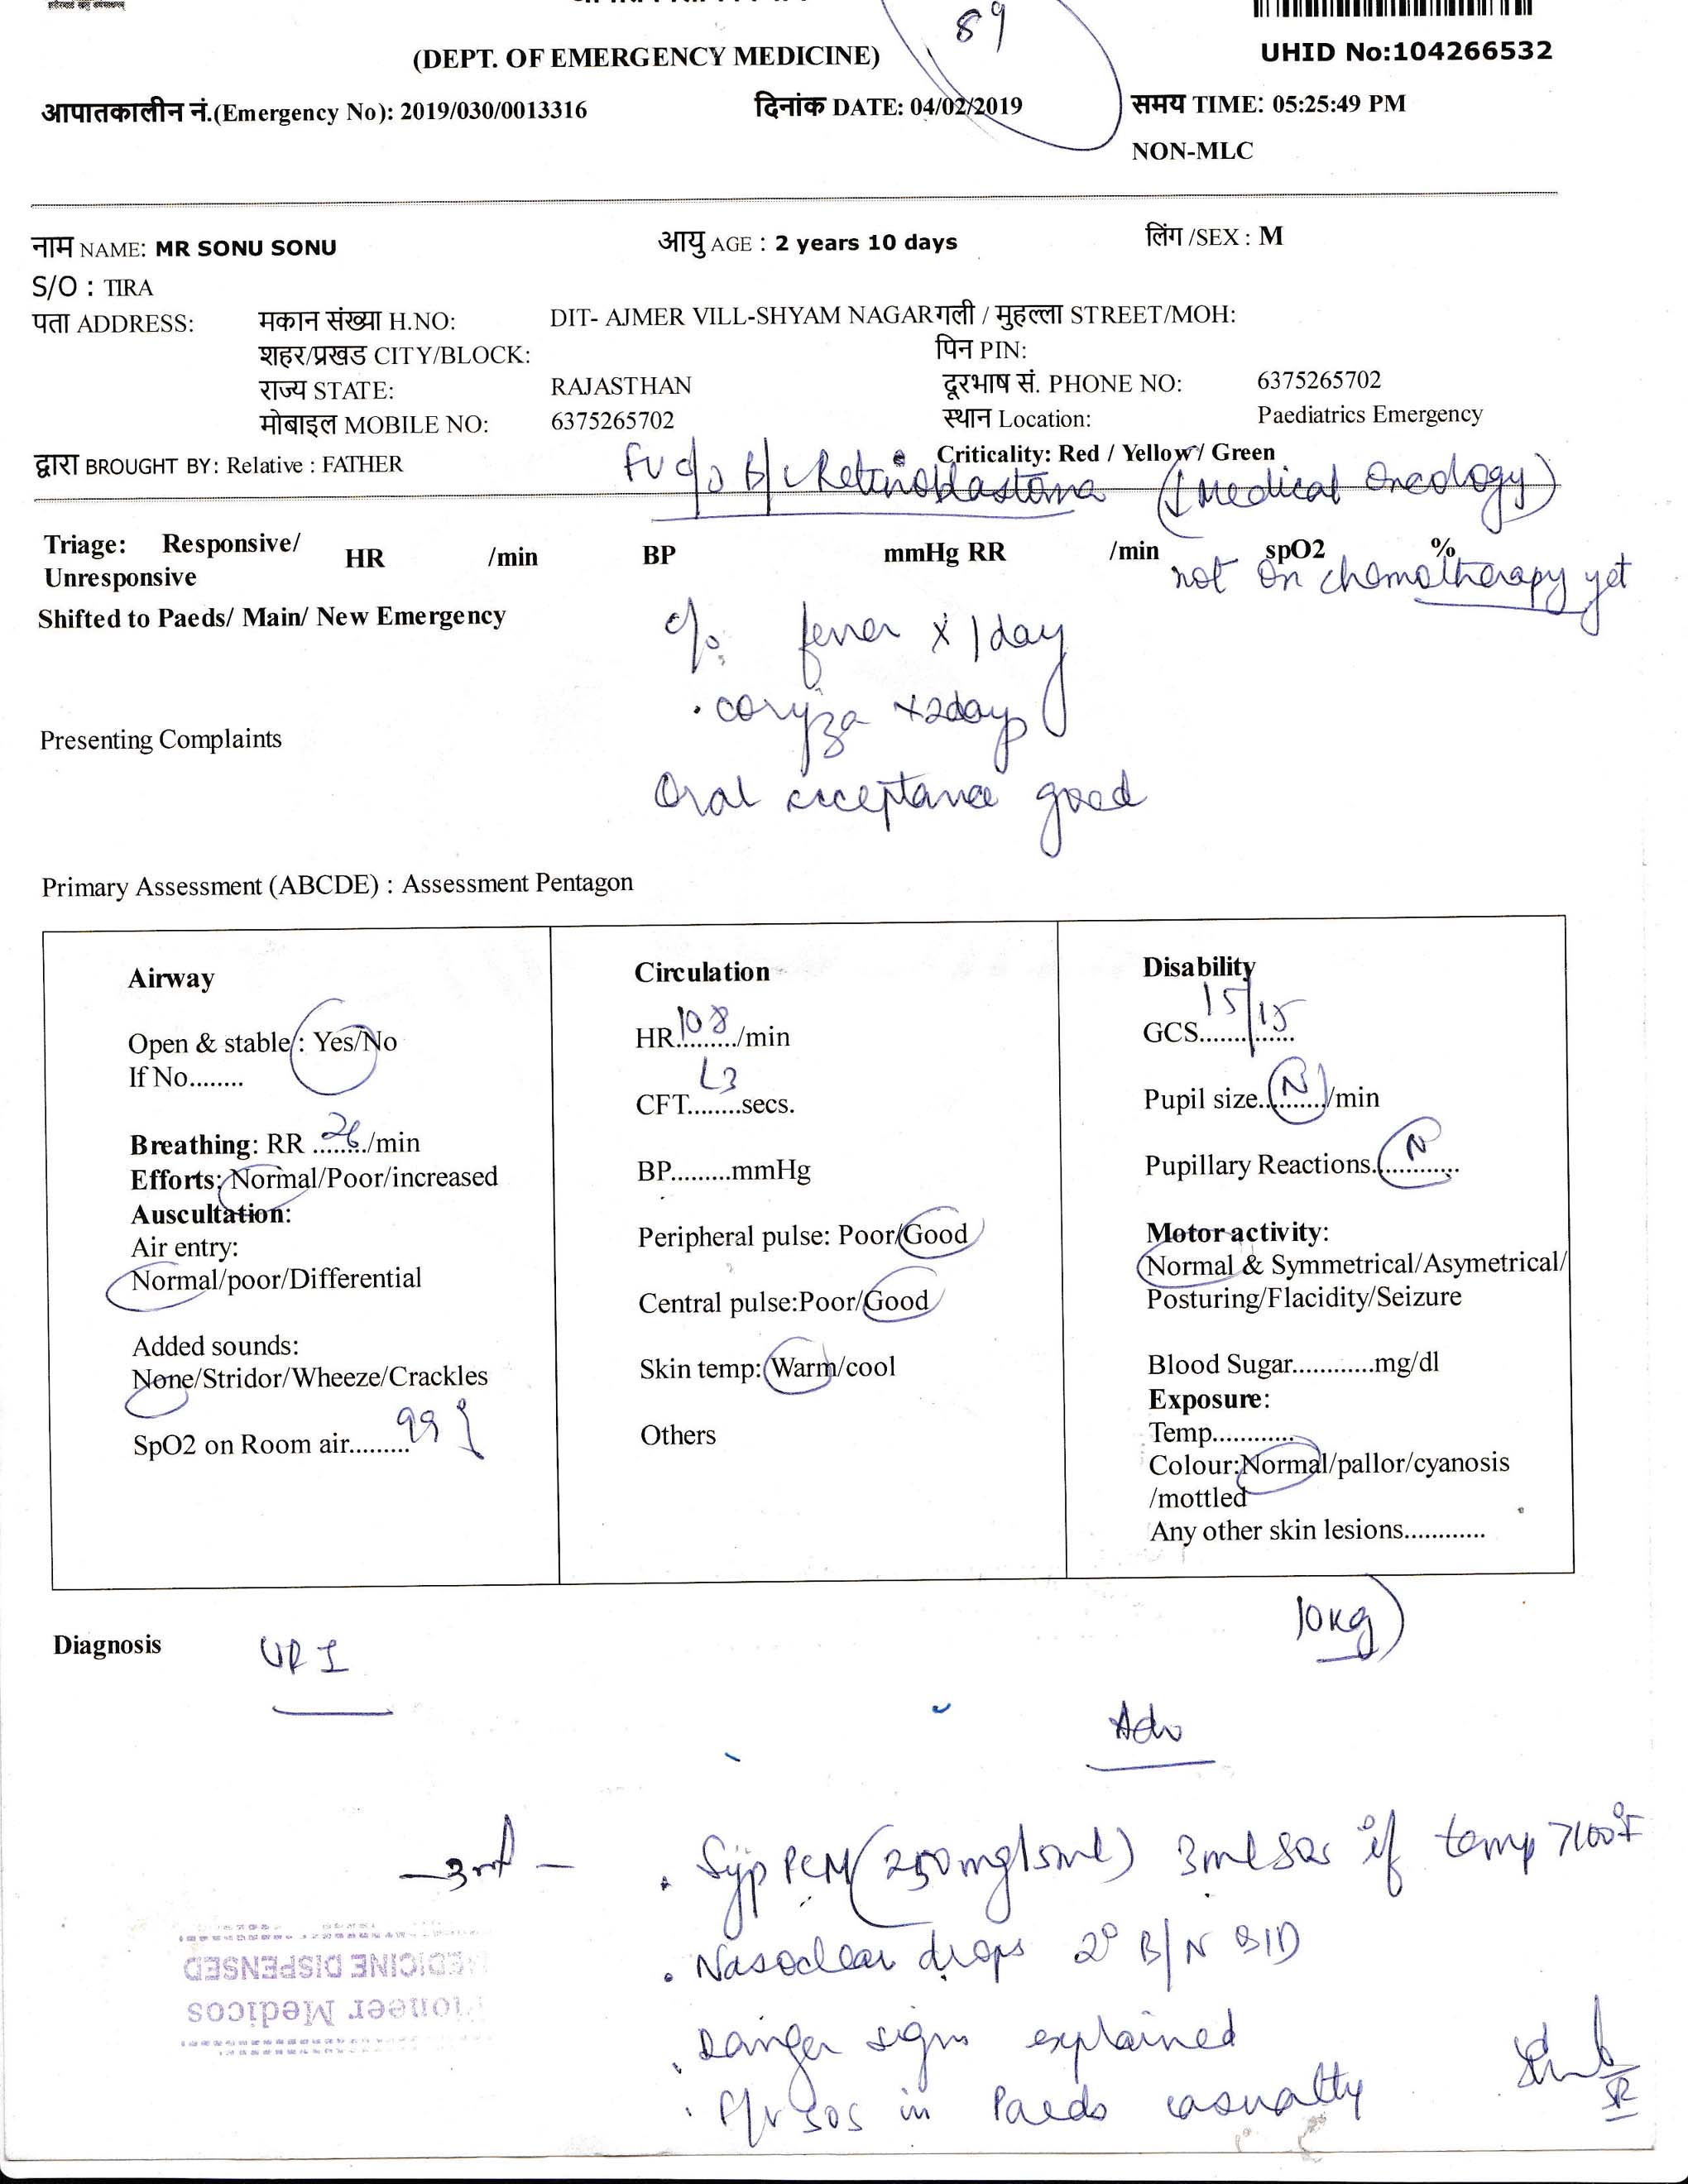 89
(DEPT. OF EMERGENCY MEDICINE)
UHID No:104266532
आपातकालीन नं.(Emergency No): 2019/030/0013316 दिनांक DATE: 04/02/2019 समय TIME: 05:25:49 PM
NON-MLC
नाम NAME: MR SONU SONU आयु AGE : 2 years 10 days लिंग /SEX : M
S/O : TIRA
पता ADDRESS: मकान संख्या H.NO: DIT- AJMER VILL-SHYAM NAGAR गली / मुहल्ला STREET/MOH:
शहर/प्रखड CITY/BLOCK: पिन PIN:
राज्य STATE: RAJASTHAN दूरभाष सं. PHONE NO: 6375265702
मोबाइल MOBILE NO: 6375265702 स्थान Location: Paediatrics Emergency
द्वारा BROUGHT BY: Relative : FATHER Criticality: Red / Yellow / Green
FU c/o B/L Retinoblastoma (Medical Oncology)
Triage: Responsive/ HR /min BP mmHg RR /min spO2 %
Unresponsive
not on chemotherapy yet
Shifted to Paeds/ Main/ New Emergency
c/o. fever x 1 day
. coryza x 2days
Presenting Complaints
Oral acceptance good
Primary Assessment (ABCDE) : Assessment Pentagon
Airway
Open & stable : Yes/No
If No........
Breathing: RR 26 /min
Efforts: Normal/Poor/increased
Auscultation:
Air entry:
Normal/poor/Differential
Added sounds:
None/Stridor/Wheeze/Crackles
SpO2 on Room air......... 99
Circulation
HR 108 /min
CFT <3 secs.
BP.........mmHg
Peripheral pulse: Poor/Good
Central pulse:Poor/Good
Skin temp: Warm/cool
Others
Disability
GCS 15/15
Pupil size N /min
Pupillary Reactions N
Motor activity:
Normal & Symmetrical/Asymetrical/
Posturing/Flacidity/Seizure
Blood Sugar............mg/dl
Exposure:
Temp............
Colour:Normal/pallor/cyanosis
/mottled
Any other skin lesions............
10kg)
Diagnosis URI
Adv
. Syp PCM (250mg/5ml) 3ml SOS if temp >100°F
. Nasoclear drops 2° B/N BID
MEDICINE DISPENSED
Pioneer Medicos
. Danger signs explained
. F/v SOS in Paeds casualty
SR